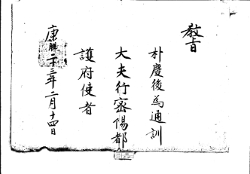 敎旨
朴慶後爲通訓
大夫行密陽都
護府使者
康熙二十三年二月十四日